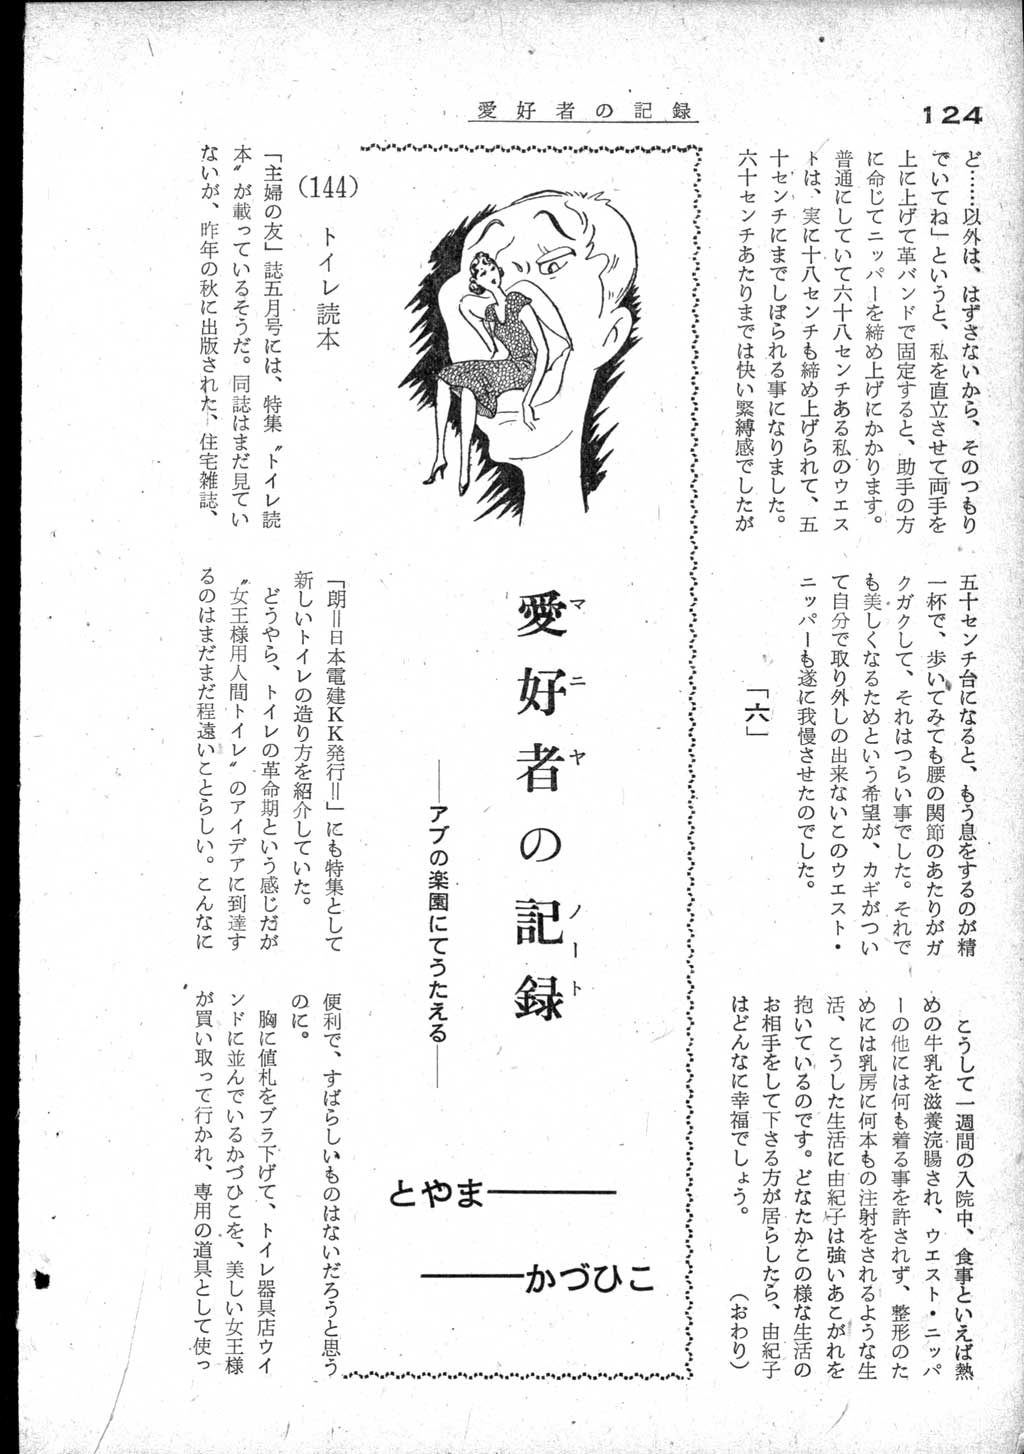 124
愛好者の記録
ど……以外は、はずさないから、そのつもり
でいてね」というと、私を直立させて両手を
上に上げて革バンドで固定すると、助手の方
に命じてニッパーを締め上げにかかります。
普通にしていて六十八センチある私のウエス
トは、実に十八センチも締め上げられて、五
十センチにまでしぼられる事になりました。
六十センチあたりまでは快い緊縛感でしたが
五十センチ台になると、もう息をするのが精
一杯で、歩いてみても腰の関節のあたりがガ
クガクして、それはつらい事でした。それで
も美しくなるためという希望が、カギがつい
て自分で取り外しの出来ないこのウエスト・
ニッパーも遂に我慢させたのでした。
「六」
こうして一週間の入院中、食事といえば熱
めの牛乳を滋養浣腸され、ウエスト・ニッパ
ーの他には何も着る事を許されず、整形のた
めには乳房に何本もの注射をされるような生
活、こうした生活に由紀子は強いあこがれを
抱いているのです。どなたかこの様な生活の
お相手をして下さる方が居らしたら、由紀子
はどんなに幸福でしょう。　（おわり）
愛好者の記録
マニヤノート
――アブの楽園にてうたえる――
とやま――
――かづひこ
（144）　トイレ読本
「主婦の友」誌五月号には、特集〝トイレ読
本〟が載っているそうだ。同誌はまだ見てい
ないが、昨年の秋に出版された、住宅雑誌、
「朗＝日本電建KK発行＝」にも特集として
新しいトイレの造り方を紹介していた。
どうやら、トイレの革命期という感じだが
〝女王様用人間トイレ〟のアイデアに到達す
るのはまだまだ程遠いことらしい。こんなに
便利で、すばらしいものはないだろうと思う
のに。
胸に値札をブラ下げて、トイレ器具店ウイ
ンドに並んでいるかづひこを、美しい女王様
が買い取って行かれ、専用の道具として使っ